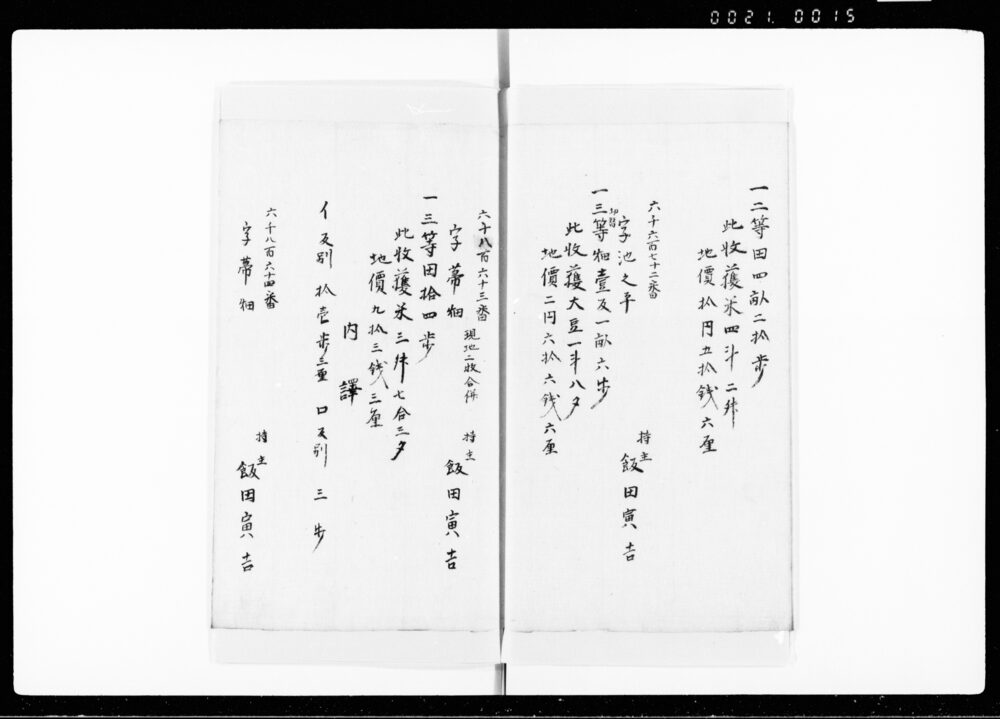 0021. 0015
一二等田四畝二拾歩
此收穫米四斗二升
地價拾円五拾錢六厘
六千六百七十二番
字池之平
持主 飯田寅吉
一三等畑壹反一畝六歩
此收穫大豆一斗八夕
地價二円六拾六錢六厘
六千八百六十三番
字 畑 現地二枚合併 持主 飯田寅吉
一三等田拾四歩
此收穫米三升七合二夕
地價九拾三錢三厘
内譯
イ反別 拾壱歩三重 ロ反別 三歩
六千八百六十四番
字 畑 持主 飯田寅吉